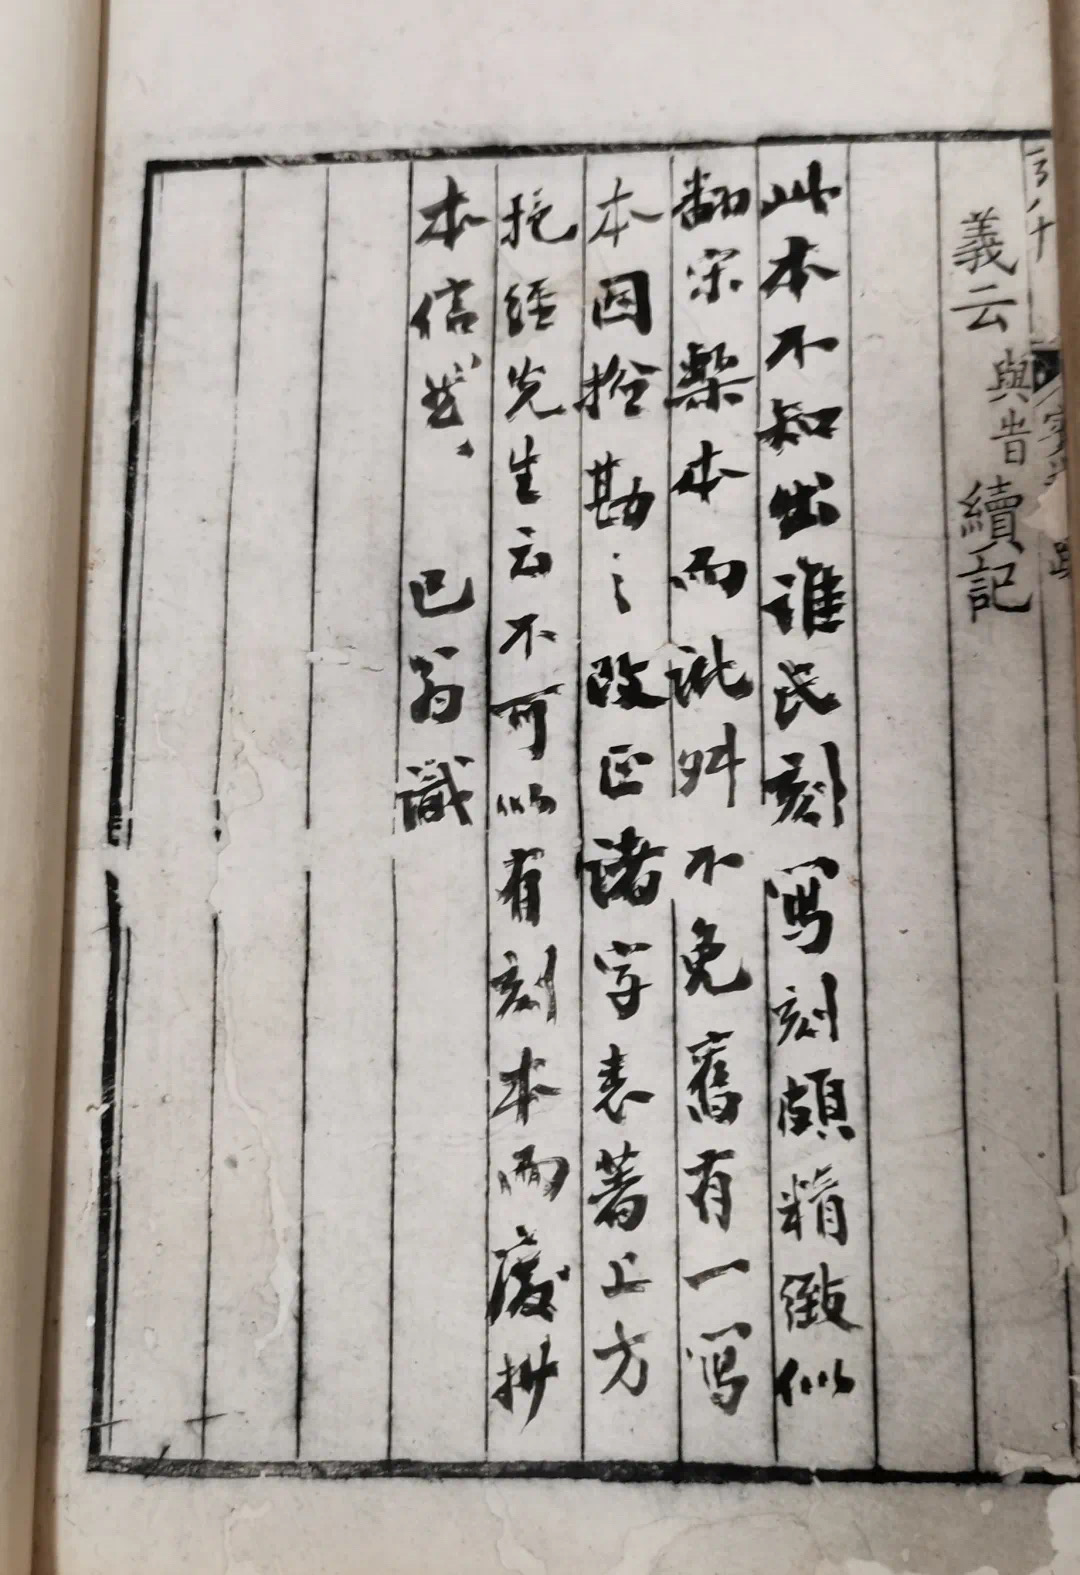 義云與昔續記
此本不知出誰氏刻寫刻頗精緻似
翻宋槧本而訛舛不免舊有一寫
本因撿勘之改正諸字表著上方
抱經先生云不可以有刻本而廢抄
本信然 已翁識